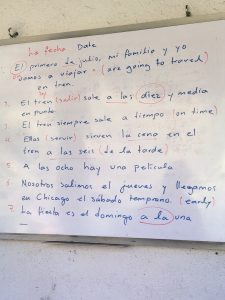 La fecha Date
El primero de julio, mi familia y yo
vamos a viajar - (are going to travel)
en tren.
2. El tren (salir) sale a las diez y media
en punto.
3. El tren siempre sale a tiempo (on time)
4. Ellos (servir) sirven la cena en el
tren a las seis (de la tarde)
5. A las ocho hay una película
6. Nosotros salimos el jueves y llegamos
en Chicago el sábado temprano. (early)
7. La fiesta es el domingo a la una